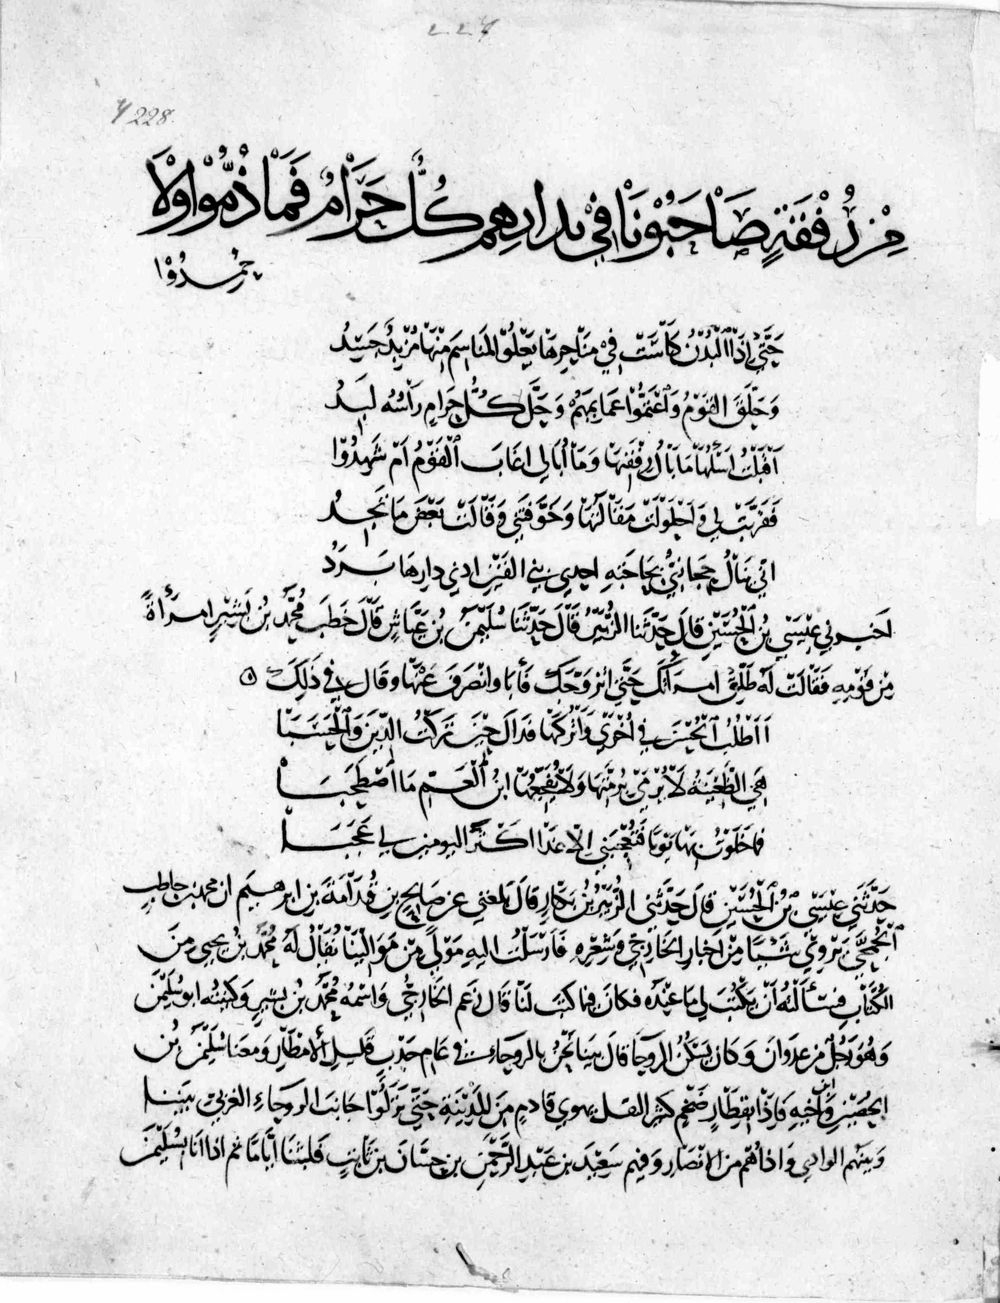 228
مِنْ رُفْقَةٍ صَاحَبُونَا فِي بِدَارِهِمِ كُلٌّ حَرَامٌ فَمَا ذُمُّوا وَلَا
حُمِدُوْا
حَتَّى إِذَا الْبُدْنُ كَانَتْ فِي مَنَاحِرِهَا يَعْلُو الْمَنَاسِمَ مِنْهَا مُزْبِدٌ جَسِدُ
وَحَلَّقَ الْقَوْمُ وَاعْتَمُّوْا عَمَائِمَهُمْ وَحَلَّ كُلُّ حَرَامٍ رَأْسُهُ لَبِدُ
أَقْبَلْتُ أَسْأَلُهَا مَا بَالُ رُفْقَتِهَا وَمَا أُبَالِي أَغَابَ الْقَوْمُ أَمْ شَهِدُوْا
فَقَرَّبَتْ لِي وَاحْلَوْلَتْ مَقَالَتُهَا وَخَوَّفَتْنِي وَقَالَتْ بَعْضَ مَا تَجِدُ
اخبرني عِيْسَى بْنُ الْحُسَيْنِ قَالَ حَدَّثَنَا الزُّبَيْرُ قَالَ حَدَّثَنَا سُلَيْمٰنُ بْنُ عَيَّاشٍ قَالَ خَطَبَ مُحَمَّدُ بْنُ بَشِيْرٍ امْرَأَةً
مِنْ قَوْمِهِ فَقَالَتْ لَهُ طَلِّقِ امْرَأَتَكَ حَتَّى أَتَزَوَّجَكَ فَأَبَا وَانْصَرَفَ عَنْهَا وَقَالَ فِي ذَلِكَ ه
أَأَطْلُبُ الْحُسْنَ فِي أُخْرَى وَأَتْرُكُهَا فَذَاكَ حِيْنَ تَرَكْتُ الدِّيْنَ وَالْحَسَبَا
هِيَ الظَّعِيْنَةُ لَا يُرْمَى بِرُمَّتِهَا وَلَا يُفَجِّعُهَا ابْنُ الْعَمِّ مَا اصْطَحَبَا
فما خَلَوْتُ بِهَا يَوْمًا فَتُعْجِبُنِي إِلَّا غَدَا أَكْثَرُ اليومين لي عَجَبَا
حَدَّثَنِي عِيْسَى بْنُ الْحُسَيْنِ قَالَ حَدَّثَنِي الزُّبَيْرُ بْنُ بَكَّارٍ قَالَ بَلَغَنِي عن صَالِحِ بنِ قُدَامَةَ بنِ ابرهيم ابن محمد بن حاطب
الْجُمَحِيِّ يَرْوِي شَيْئًا مِنْ أَخْبَارِ الْخَارِجِيِّ وَشِعْرِهِ فَأَرْسَلْتُ اليهِ مَوْلًى مِنْ مَوَالِيْنَا يُقَالُ لَهُ مُحَمَّدُ بْنُ يحيى مِنَ
الْكُتَّابِ فَسَأَلْتُهُ أَنْ يَكْتُبَ لِي مَا عِنْدَهُ فكان فِيما كَتَبَ لَنَا قَالَ زَعَمَ الْخَارِجِيُّ وَاسْمُهُ مُحَمَّدُ بْنُ بَشِيرٍ وَكُنْيَتُهُ ابو سُلَيْمٰنَ
وَهُوَ رَجُلٌ مِنْ عَدْوَانَ وَكَانَ يَسْكُنُ الروحَا قَالَ بينا نَحْنُ بالروحاءِ في عَامٍ جَدْبٍ قَلِيلِ الأَمْطَارِ وَمَعَنَا سُلَيْمٰنُ بْنُ
الْحُصَيْنِ وَابْنُ أُخْتِهِ وَإِذَا بِقِطَارٍ ضَخْمٍ كثير الثقل يَهْوِي قادمٍ مِنَ المَدِيْنَةِ حَتَّى نَزَلُوا جَانِبَ الروحاءِ الغربي بيننا
وبينهم الوادي وَاذا هُمْ مِنَ الانْصَارِ وَفِيهِم سَعِيْدُ بنُ عَبْدِ الرَّحْمٰنِ بنِ حسَّانَ بنِ ثَابِتٍ فَلَبِثْنَا أَيَّامًا ثُمَّ اذا أَنَا بِسُلَيْمٰنَ